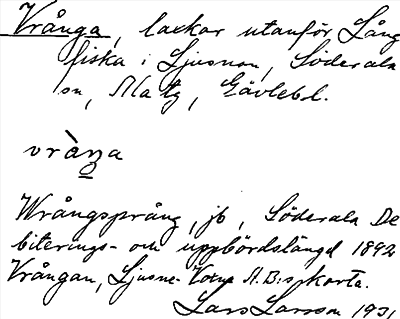 Vrånga, laxkar utanför Lång
fiska i Ljusnan, Söderala
sn, Alatg, Gävlebl.
vràŋa
Wrångsprång, jb, Söderala De
biterings- och uppbördslängd 1892
Vrångan, Ljusne-Voxna A.B:s karta.
Lars Larsson 1931